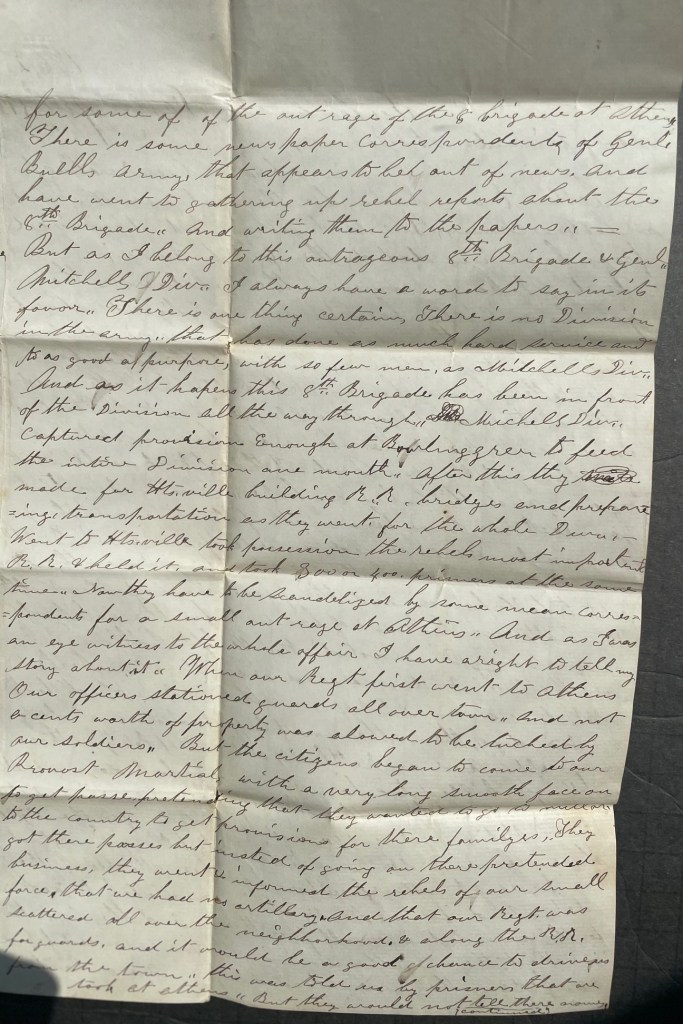 for some of of the out rage of the 8 brigade at Athens
There is some news paper correspondents of Genl.
Buells army, that appears to beh out of news. And
have went to gathering up rebel reports about the
8th Brigade,, And writing them to the papers,, =
But as I belong to this outrageous 8th Brigade & Genl,,
Mitchells Div,, I always have a word to say in its
favor,, There is one thing certain, There is no Division
in the army,, that has done as much hard service and
to as good a purpose, with so few men, as Mitchells Div,,
And as it hapens this 8th Brigade has been in front
of the Division all the way through,, Michells Div,,
Captured provision Enough at Bowlinggreen to feed
the intire Division one month,, After this they
made for Hts,ville building R.R. bridges and prepare
=ing, transportation as they went. for the whole Divn,—
Went to Hts.ville took possession the rebels most important
R. R. & held it, and took 300 or 400. prisners at the same
time,, Now they have to be scandelized by some mean corres=
=pondents for a small out rage at Athens,, And as I was
an eye witness to the whole affair I have aright to tell my
story about it,, When our Regt first went to Athens
Our officers stationed guards all over town,, And not
a cents worth of property was alowed to be tuched by
our soldiers,, But the citizens began to come to our
Provost Martial with a very long smooth face on
to get passe pretending that they wanted to go
to the country to get provisions for there familyes,, They
got there passes but insted of going on there pretended
business, they went & informed the rebels of our small
force, that we had no artillery, And that our Regt. was
scattered all over the neighborhood, & along the R.R.
for guards. and it would be a good chance to drive us
from the town,, this was told us by prisners that we
took at Athens,, But they would not tell there names
(continued)